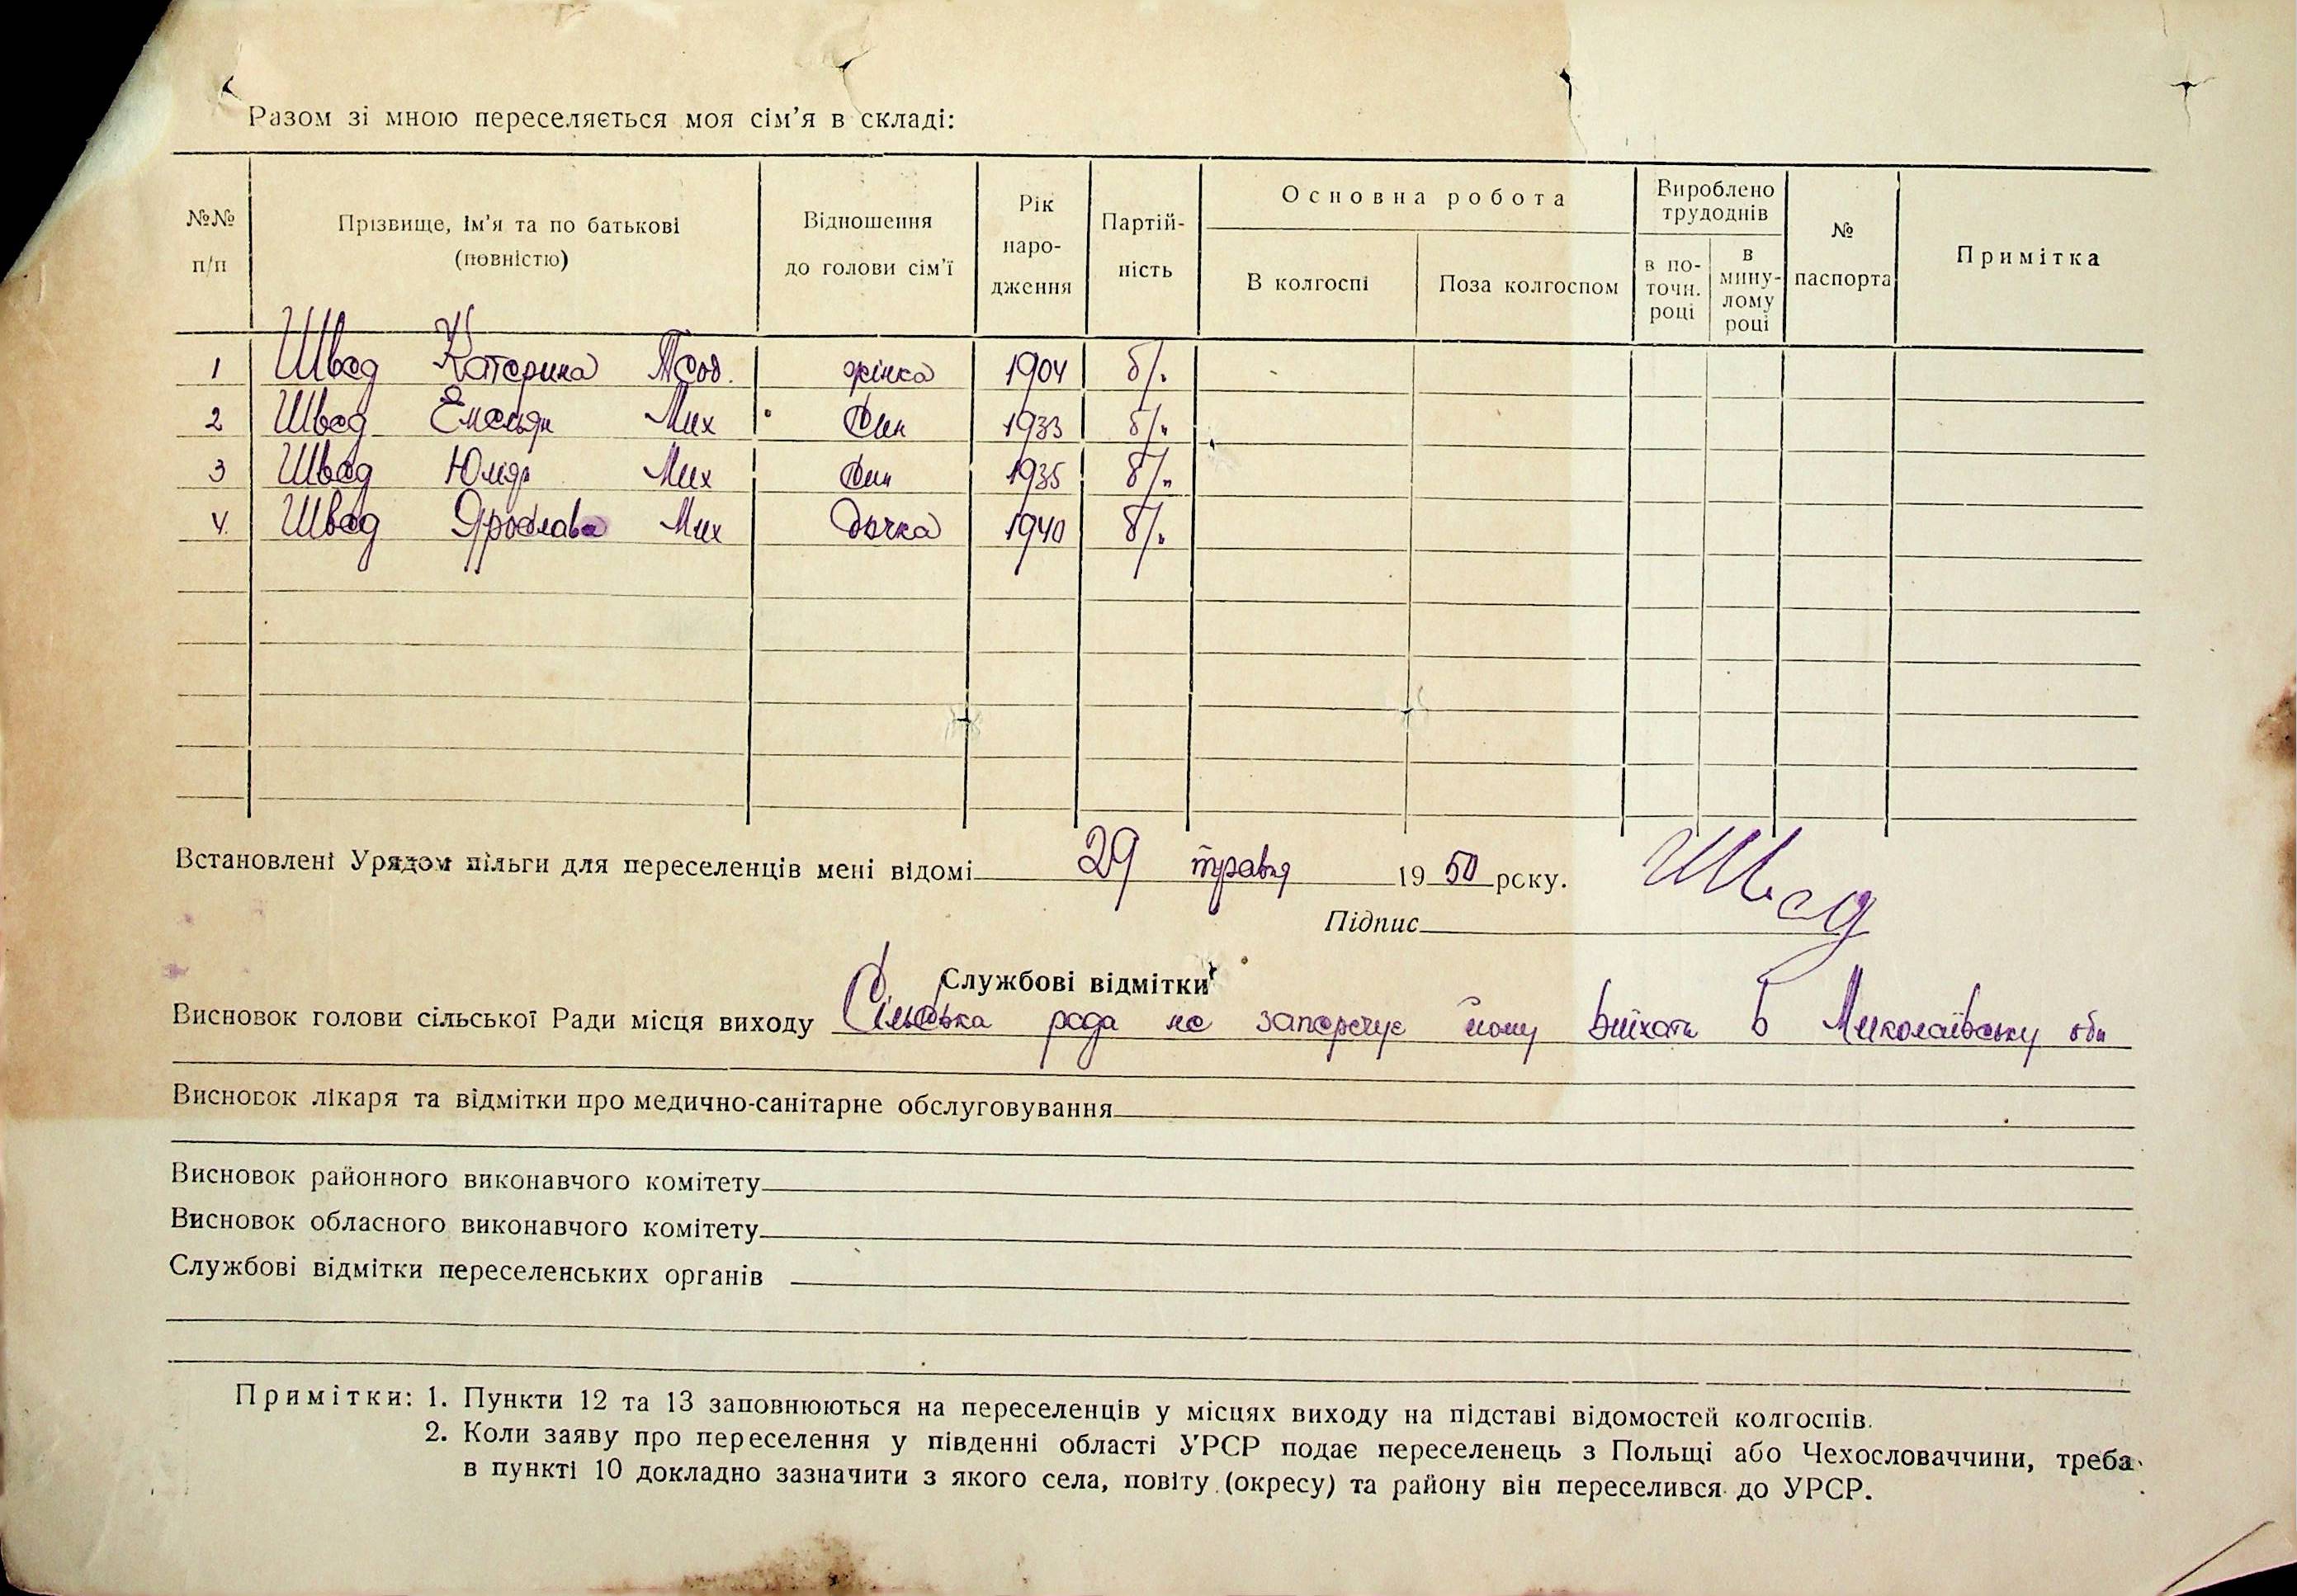 Разом зі мною переселяється моя сім'я в складі:
№№ п/п
Прізвище, ім'я та по батькові (повністю)
Відношення до голови сім'ї
Рік народження
Партійність
Основна робота
В колгоспі
Поза колгоспом
Вироблено трудоднів
в поточн. році
в минулому році
№ паспорта
Примітка
1 Швед Катерина жінка 1904 б/п
2 Швед Емельян Мих син 1933 б/п
3 Швед Мих син 1935 б/п
4. Швед Ярослава Мих дочка 1940 б/п
Встановлені Урядом пільги для переселенців мені відомі 29 травня 1950 року.
Підпис Швед
Службові відмітки
Висновок голови сільської Ради місця виходу Сільська рада не заперечує йому виїхати в Миколаївську обл
Висновок лікаря та відмітки про медично-санітарне обслуговування
Висновок районного виконавчого комітету
Висновок обласного виконавчого комітету
Службові відмітки переселенських органів
Примітки: 1. Пункти 12 та 13 заповнюються на переселенців у місцях виходу на підставі відомостей колгоспів.
2. Коли заяву про переселення у південні області УРСР подає переселенець з Польщі або Чехословаччини, треба
в пункті 10 докладно зазначити з якого села, повіту (окресу) та району він переселився до УРСР.